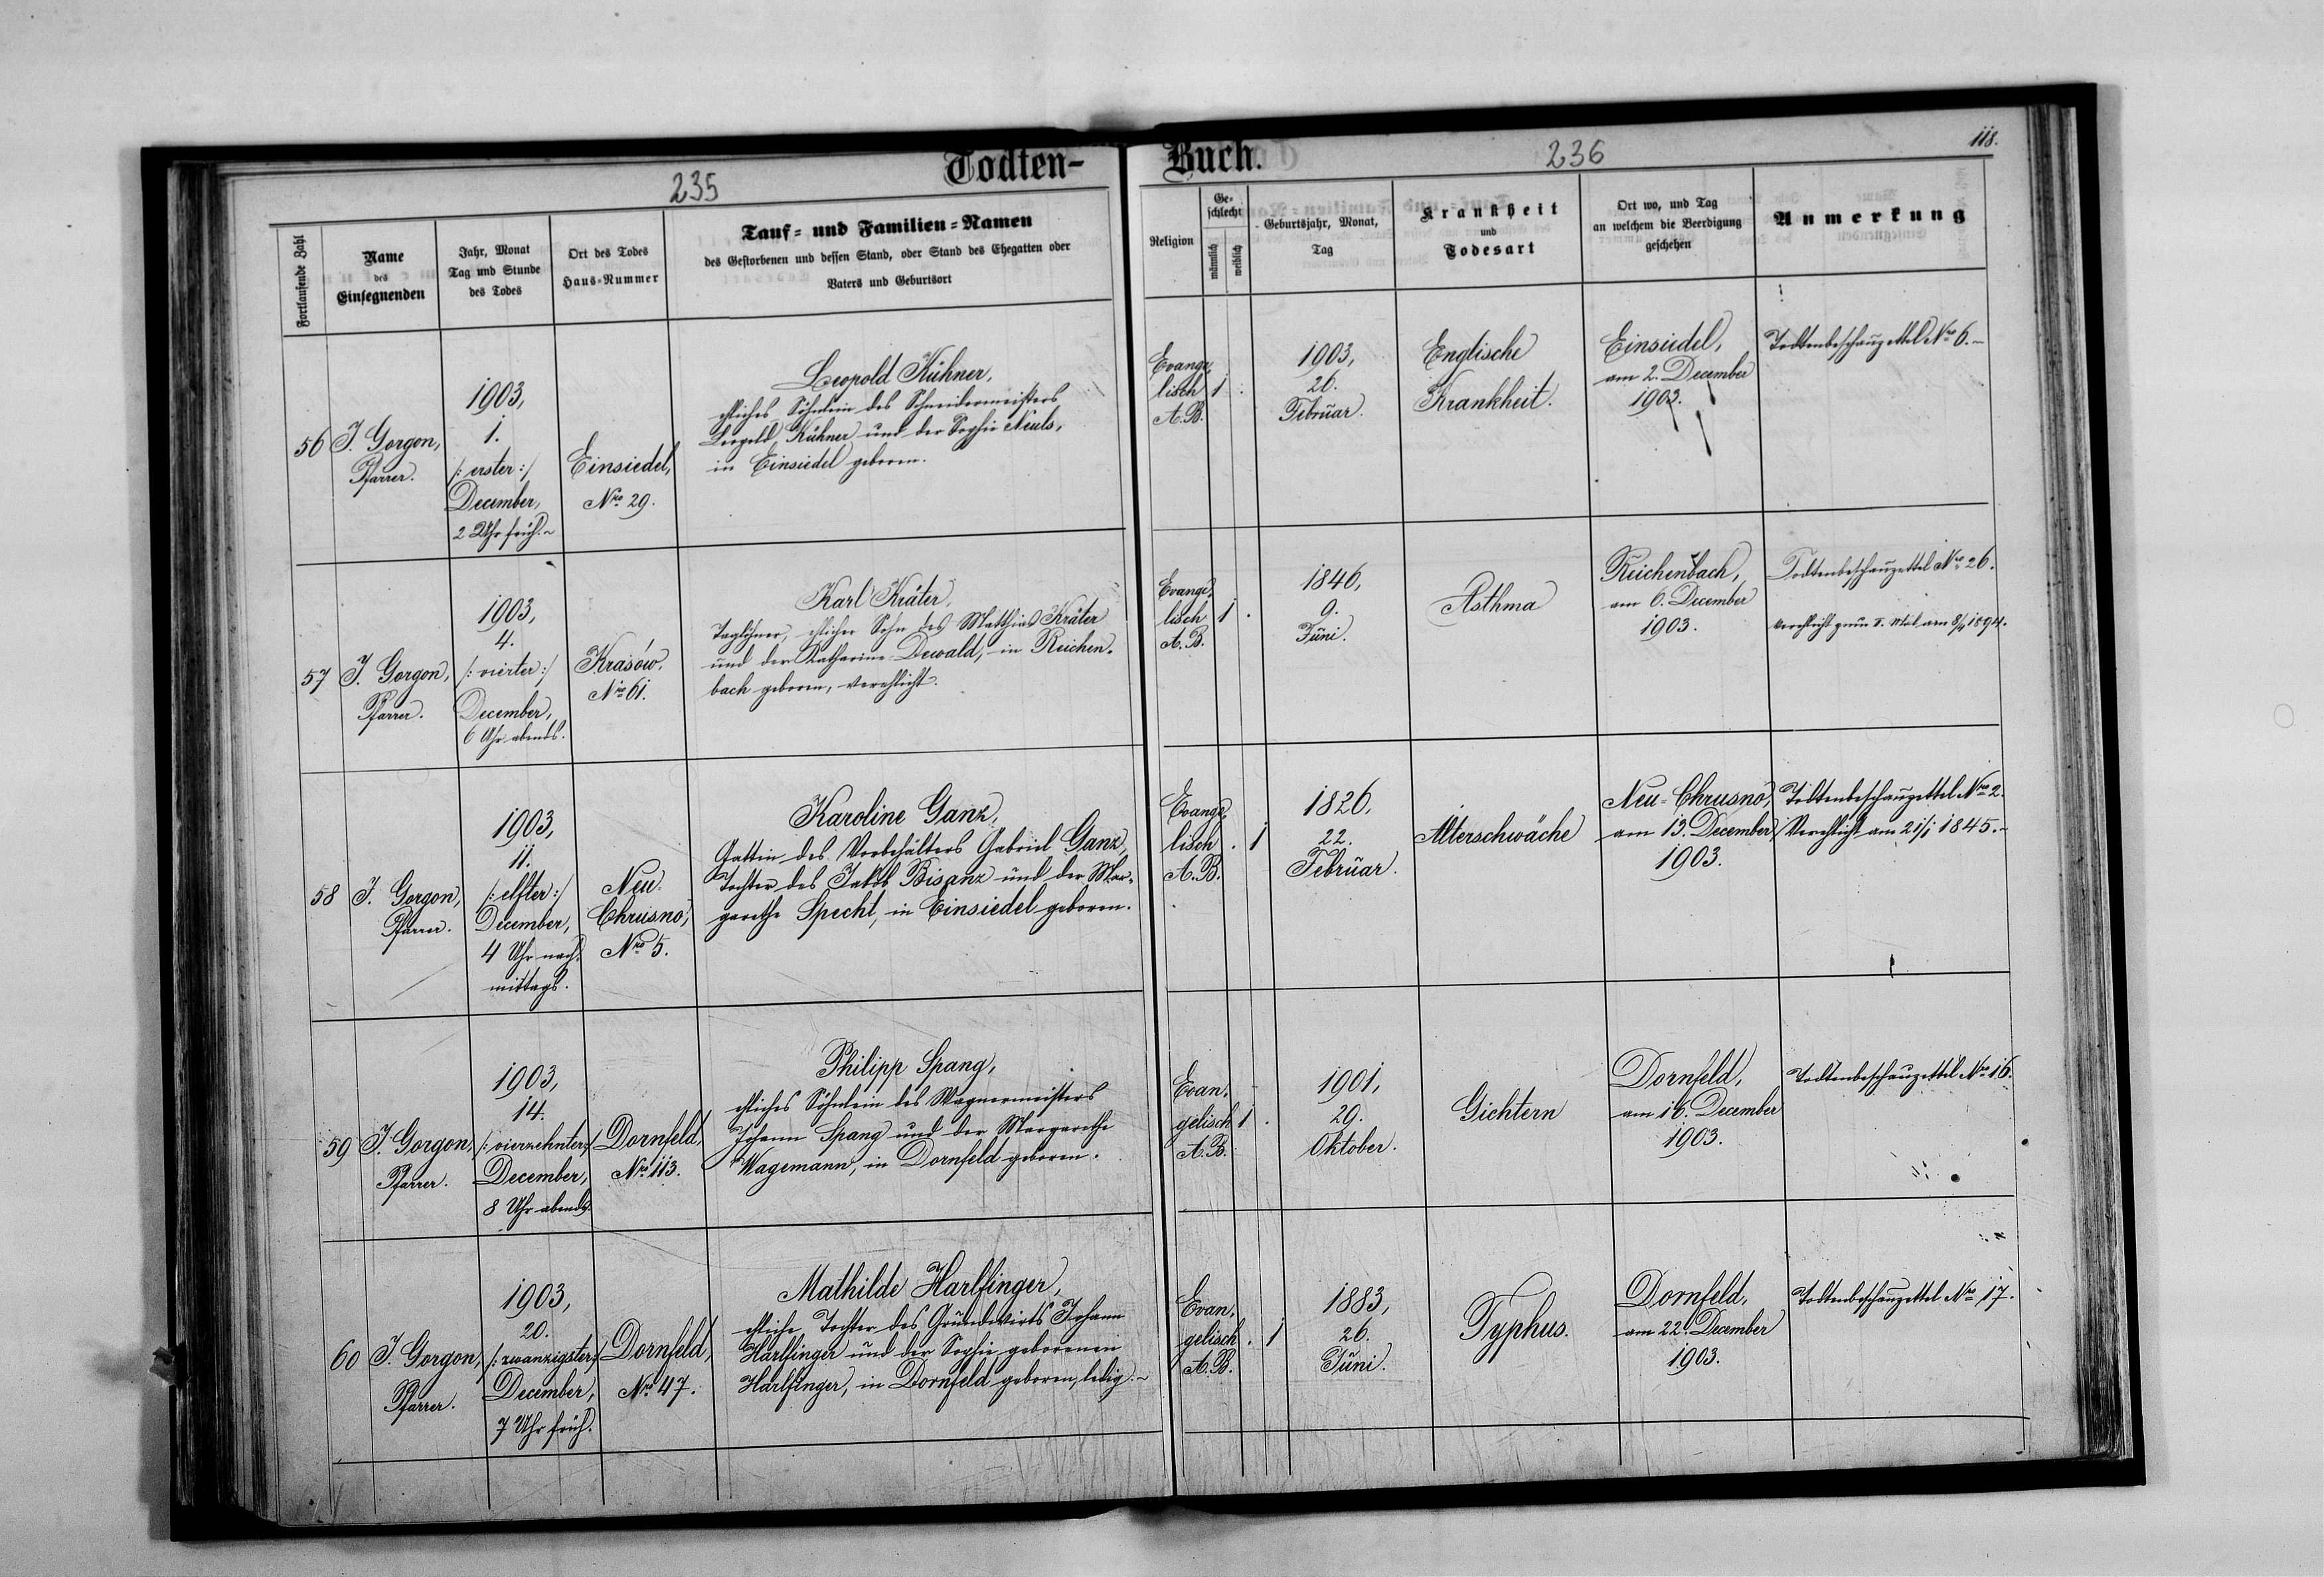 Todten-
235
Fortlaufende Zahl
Name
des
Einsegnenden
Jahr, Monat
Tag und Stunde
des Todes
Ort des Todes
Haus-Nummer
Tauf- und Familien-Namen
des Gestorbenen und dessen Stand, oder Stand des Ehegatten oder
Vaters und Geburtsort
56
J. Gorgon,
Pfarrer.
1903,
1.
/: erster :/
December,
2 Uhr früh.
Einsiedel,
Nro 29.
Leopold Kühner,
eheliches Söhnlein des Schneidermeisters
Leopold Kühner und der Sophie Neuls,
in Einsiedel geboren.
57
J. Gorgon,
Pfarrer.
1903,
4.
/: vierter :/
December,
6 Uhr abends.
Krasów,
Nro 61.
Karl Kräter,
Taglöhner, ehlicher Sohn des Matthias Kräter
und der Katharina Dewald, in Reichen-
bach geboren, verehlicht.
58
J. Gorgon,
Pfarrer.
1903,
11.
/: elfter :/
December,
4 Uhr nach-
mittags.
Neu-
Chrusno,
Nro 5.
Karoline Ganz,
Gattin des Vorbehälters Gabriel Ganz,
Tochter des Jakob Bisanz und der Mar-
garethe Specht, in Einsiedel geboren.
59
J. Gorgon,
Pfarrer.
1903,
14.
/: vierzehnter :/
December,
8 Uhr abends.
Dornfeld,
Nro 113.
Philipp Spang,
ehliches Söhnlein des Wagnermeisters
Johann Spang und der Margarethe
Wagemann, in Dornfeld geboren.
60
J. Gorgon,
Pfarrer.
1903,
20.
/: zwanzigster :/
December,
7 Uhr früh.
Dornfeld,
Nro 47.
Mathilde Harlfinger,
ehliche Tochter des Grundwirts Johann
Harlfinger und der Sophie geborenen
Harlfinger, in Dornfeld geboren, ledig.
Buch.
236
118.
Religion
Ge-
schlecht
männlich
weiblich
Geburtsjahr, Monat,
Tag
Krankheit
und
Todesart
Ort wo, und Tag
an welchem die Beerdigung
geschehen
Anmerkung
Evange-
lisch
A. B.
1
1903,
26.
Februar.
Englische
Krankheit.
Einsiedel,
am 2. December
1903.
Todtenbeschauzettel Nro 6.
Evange-
lisch
A. B.
1
1846,
9.
Juni.
Asthma
Reichenbach,
am 6. December
1903.
Todtenbeschauzettel Nro 26.
Evange-
lisch
A. B.
1
1826,
22.
Februar.
Alterschwäche
Neu-Chrusno,
am 13. December
1903.
Todtenbeschauzettel Nro 2.
Verehlicht am 21/1 1845.
Evan-
gelisch
A. B.
1
1901,
29.
Oktober.
Gichtern
Dornfeld,
am 16. December
1903.
Todtenbeschauzettel Nro 16.
Evan-
gelisch
A. B.
1
1883,
26.
Juni.
Typhus.
Dornfeld,
am 22. December
1903.
Todtenbeschauzettel Nro 17.